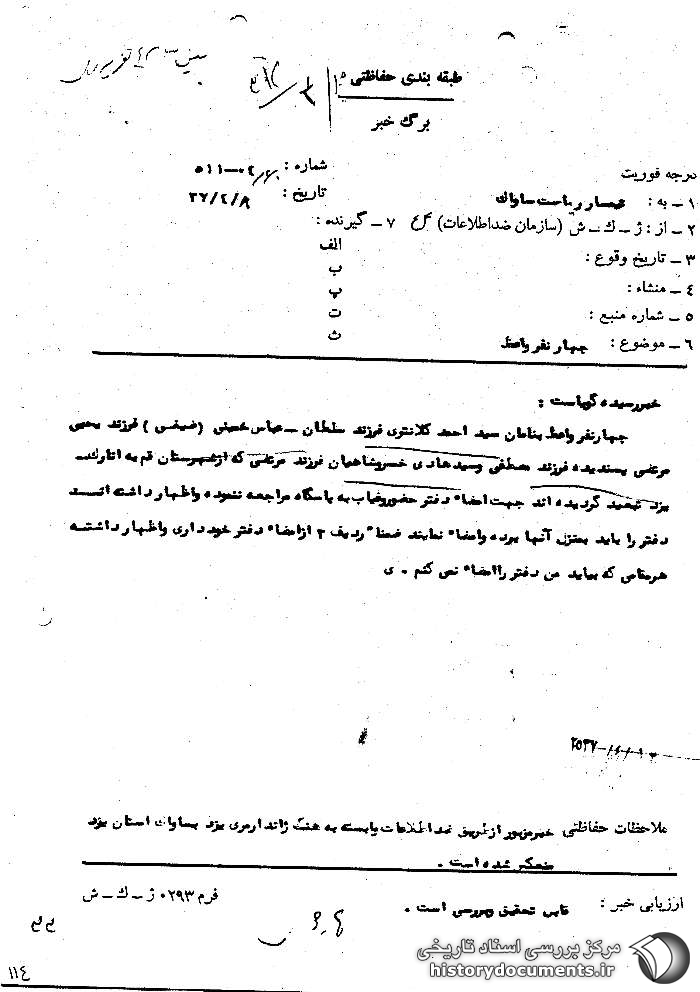 طبقه بندی حفاظتی
برگ خبر
درجه فوریت
شماره : ۵۱۱-۰۴
۱ - به : تیمسار ریاست ساواک
تاریخ : ۳۷/۲/۹
۲ - از : ژ - ک - ش (سازمان ضداطلاعات)
۷ - گیرنده :
۳ - تاریخ وقوع :
الف
ب
۴ - منشاء :
پ
۵ - شماره منبع :
ت
۶ - موضوع : چهار نفر واعظ
ث
خبر رسیده گویاست :
چهار نفر واعظ بنامان سید احمد کلانتری فرزند سلطان - عباس خمینی (ضیغمی) فرزند یحیی
مرتضی پسندیده فرزند مصطفی وسید هادی خسروشاهیان فرزند مرتضی که از شهرستان قم به انارک
یزد تبعید گردیده اند جهت امضاء دفتر حضور و غیاب به پاسگاه مراجعه ننموده و اظهار داشته اند
دفتر را باید بمنزل آنها برده و امضاء نمایند ضمنا" ردیف ۳ از امضاء دفتر خودداری و اظهار داشته
هر مقامی که بیاید من دفتر را امضاء نمی کنم . ی
ملاحظات حفاظتی خبر مزبور از طریق ضد اطلاعات وابسته به هنگ ژاندارمری یزد بساواک استان یزد
منعکس شده است .
ارزیابی خبر : قابل تحقیق وبررسی است .
فرم ۰۲۹۳ ژ - ک - ش
۱۱۴
مرکز بررسی اسناد تاریخی
historydocuments.ir